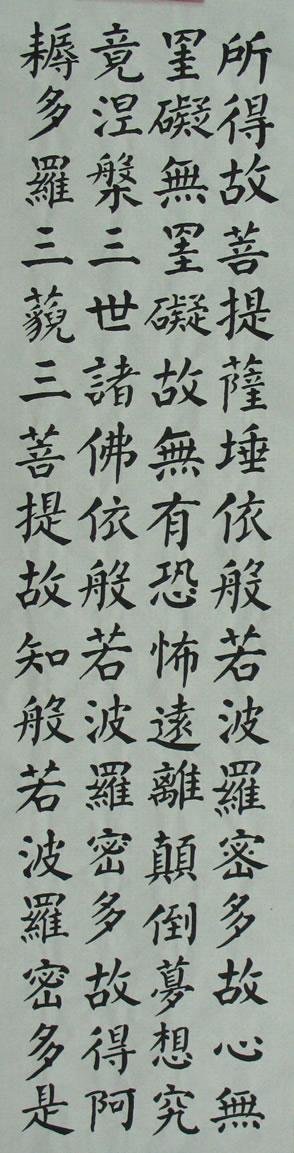 所得故菩提薩埵依般若波羅密多故心無
罣礙無罣礙故無有恐怖遠離顛倒夢想究
竟涅槃三世諸佛依般若波羅密多故得阿
耨多羅三藐三菩提故知般若波羅密多是